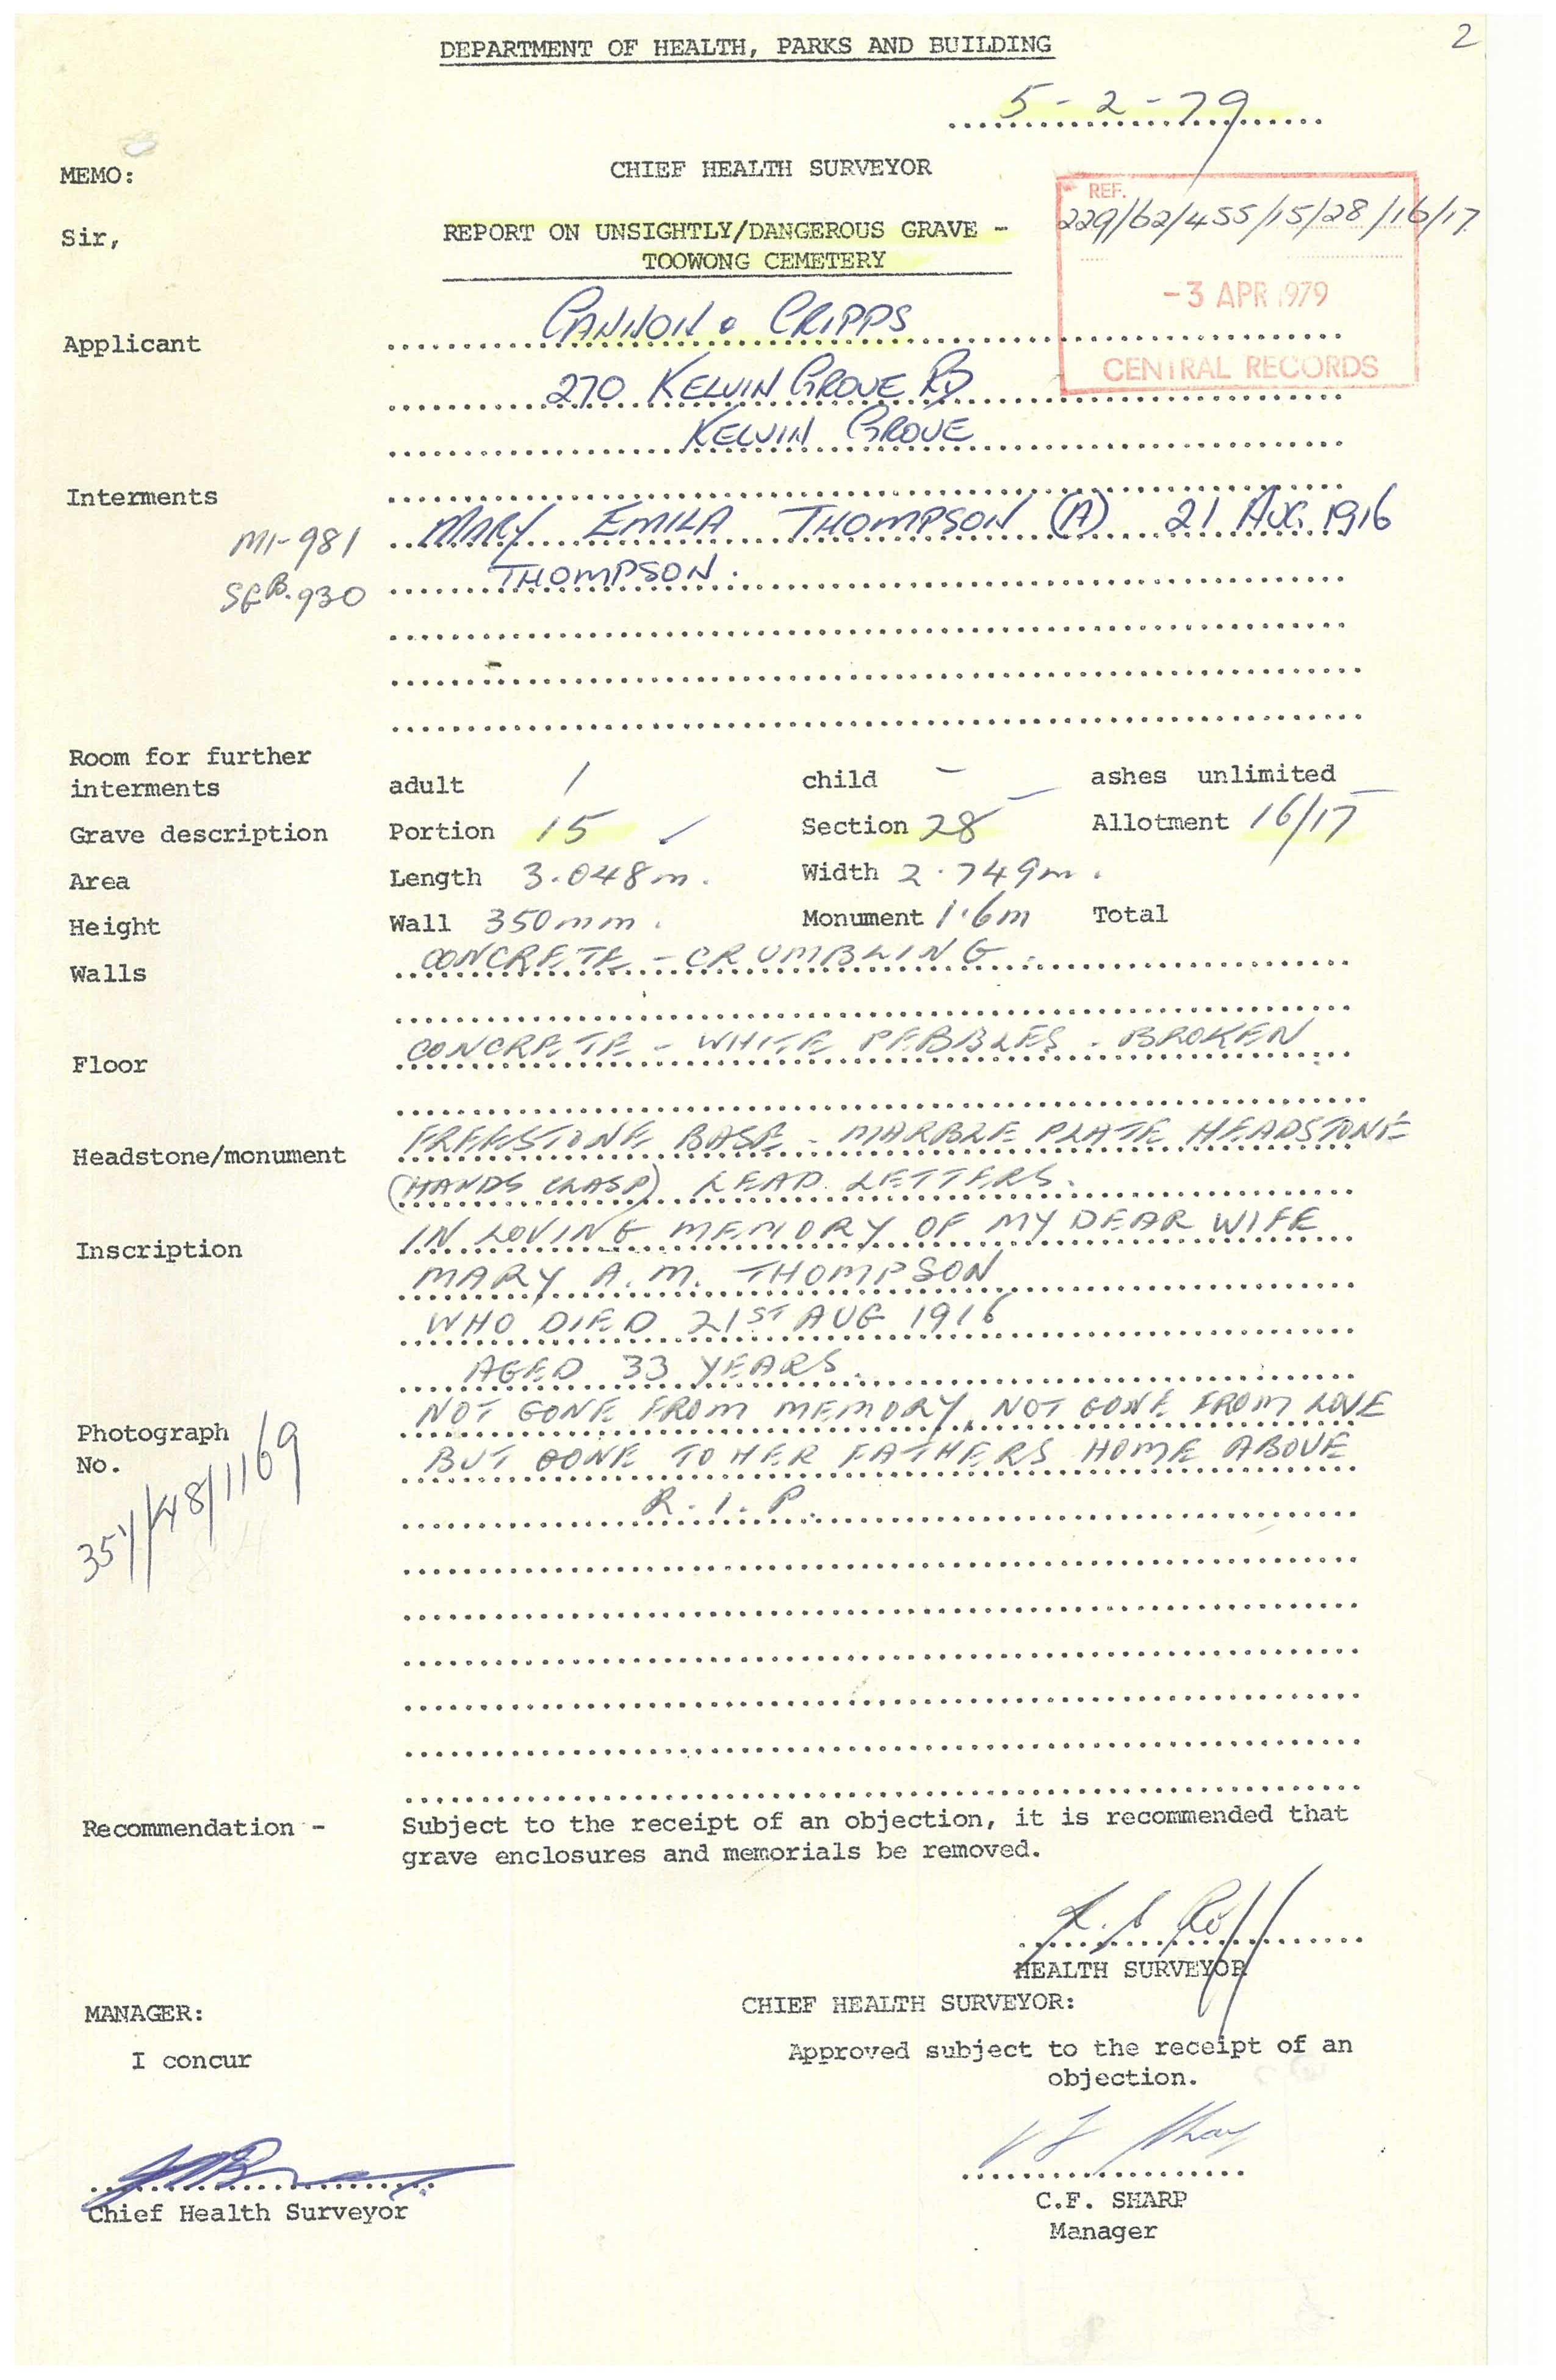 2
DEPARTMENT OF HEALTH, PARKS AND BUILDING
5-2-79
MEMO: CHIEF HEALTH SURVEYOR
REF.
229/62/455/15/28/16/17
Sir, REPORT ON UNSIGHTLY/DANGEROUS GRAVE -
TOOWONG CEMETERY
-3 APR 1979
CENTRAL RECORDS
Applicant CANNON & CRIPPS
270 KELVIN GROVE RD
KELVIN GROVE
Interments
M1-981 MARY EMILA THOMPSON (A) 21 AUG. 1916
THOMPSON.
930
Room for further
interments adult 1 child - ashes unlimited -
Grave description Portion 15 ✓ Section 28 Allotment 16/17
Area Length 3.048m. Width 2.749m.
Height Wall 350mm. Monument 1.6m Total
Walls CONCRETE - CRUMBLING.
Floor CONCRETE - WHITE PEBBLES - BROKEN
Headstone/monument FREESTONE BASE - MARBLE PLATE HEADSTONE
(HANDS CLASP) LEAD LETTERS.
Inscription IN LOVING MEMORY OF MY DEAR WIFE
MARY A.M. THOMPSON
WHO DIED 21ST AUG 1916
AGED 33 YEARS.
NOT GONE FROM MEMORY, NOT GONE FROM LOVE
BUT GONE TO HER FATHERS HOME ABOVE
R.I.P.
Photograph
No.
Recommendation - Subject to the receipt of an objection, it is recommended that
grave enclosures and memorials be removed.
HEALTH SURVEYOR
MANAGER: CHIEF HEALTH SURVEYOR:
I concur Approved subject to the receipt of an
objection.
Chief Health Surveyor C.F. SHARP
Manager